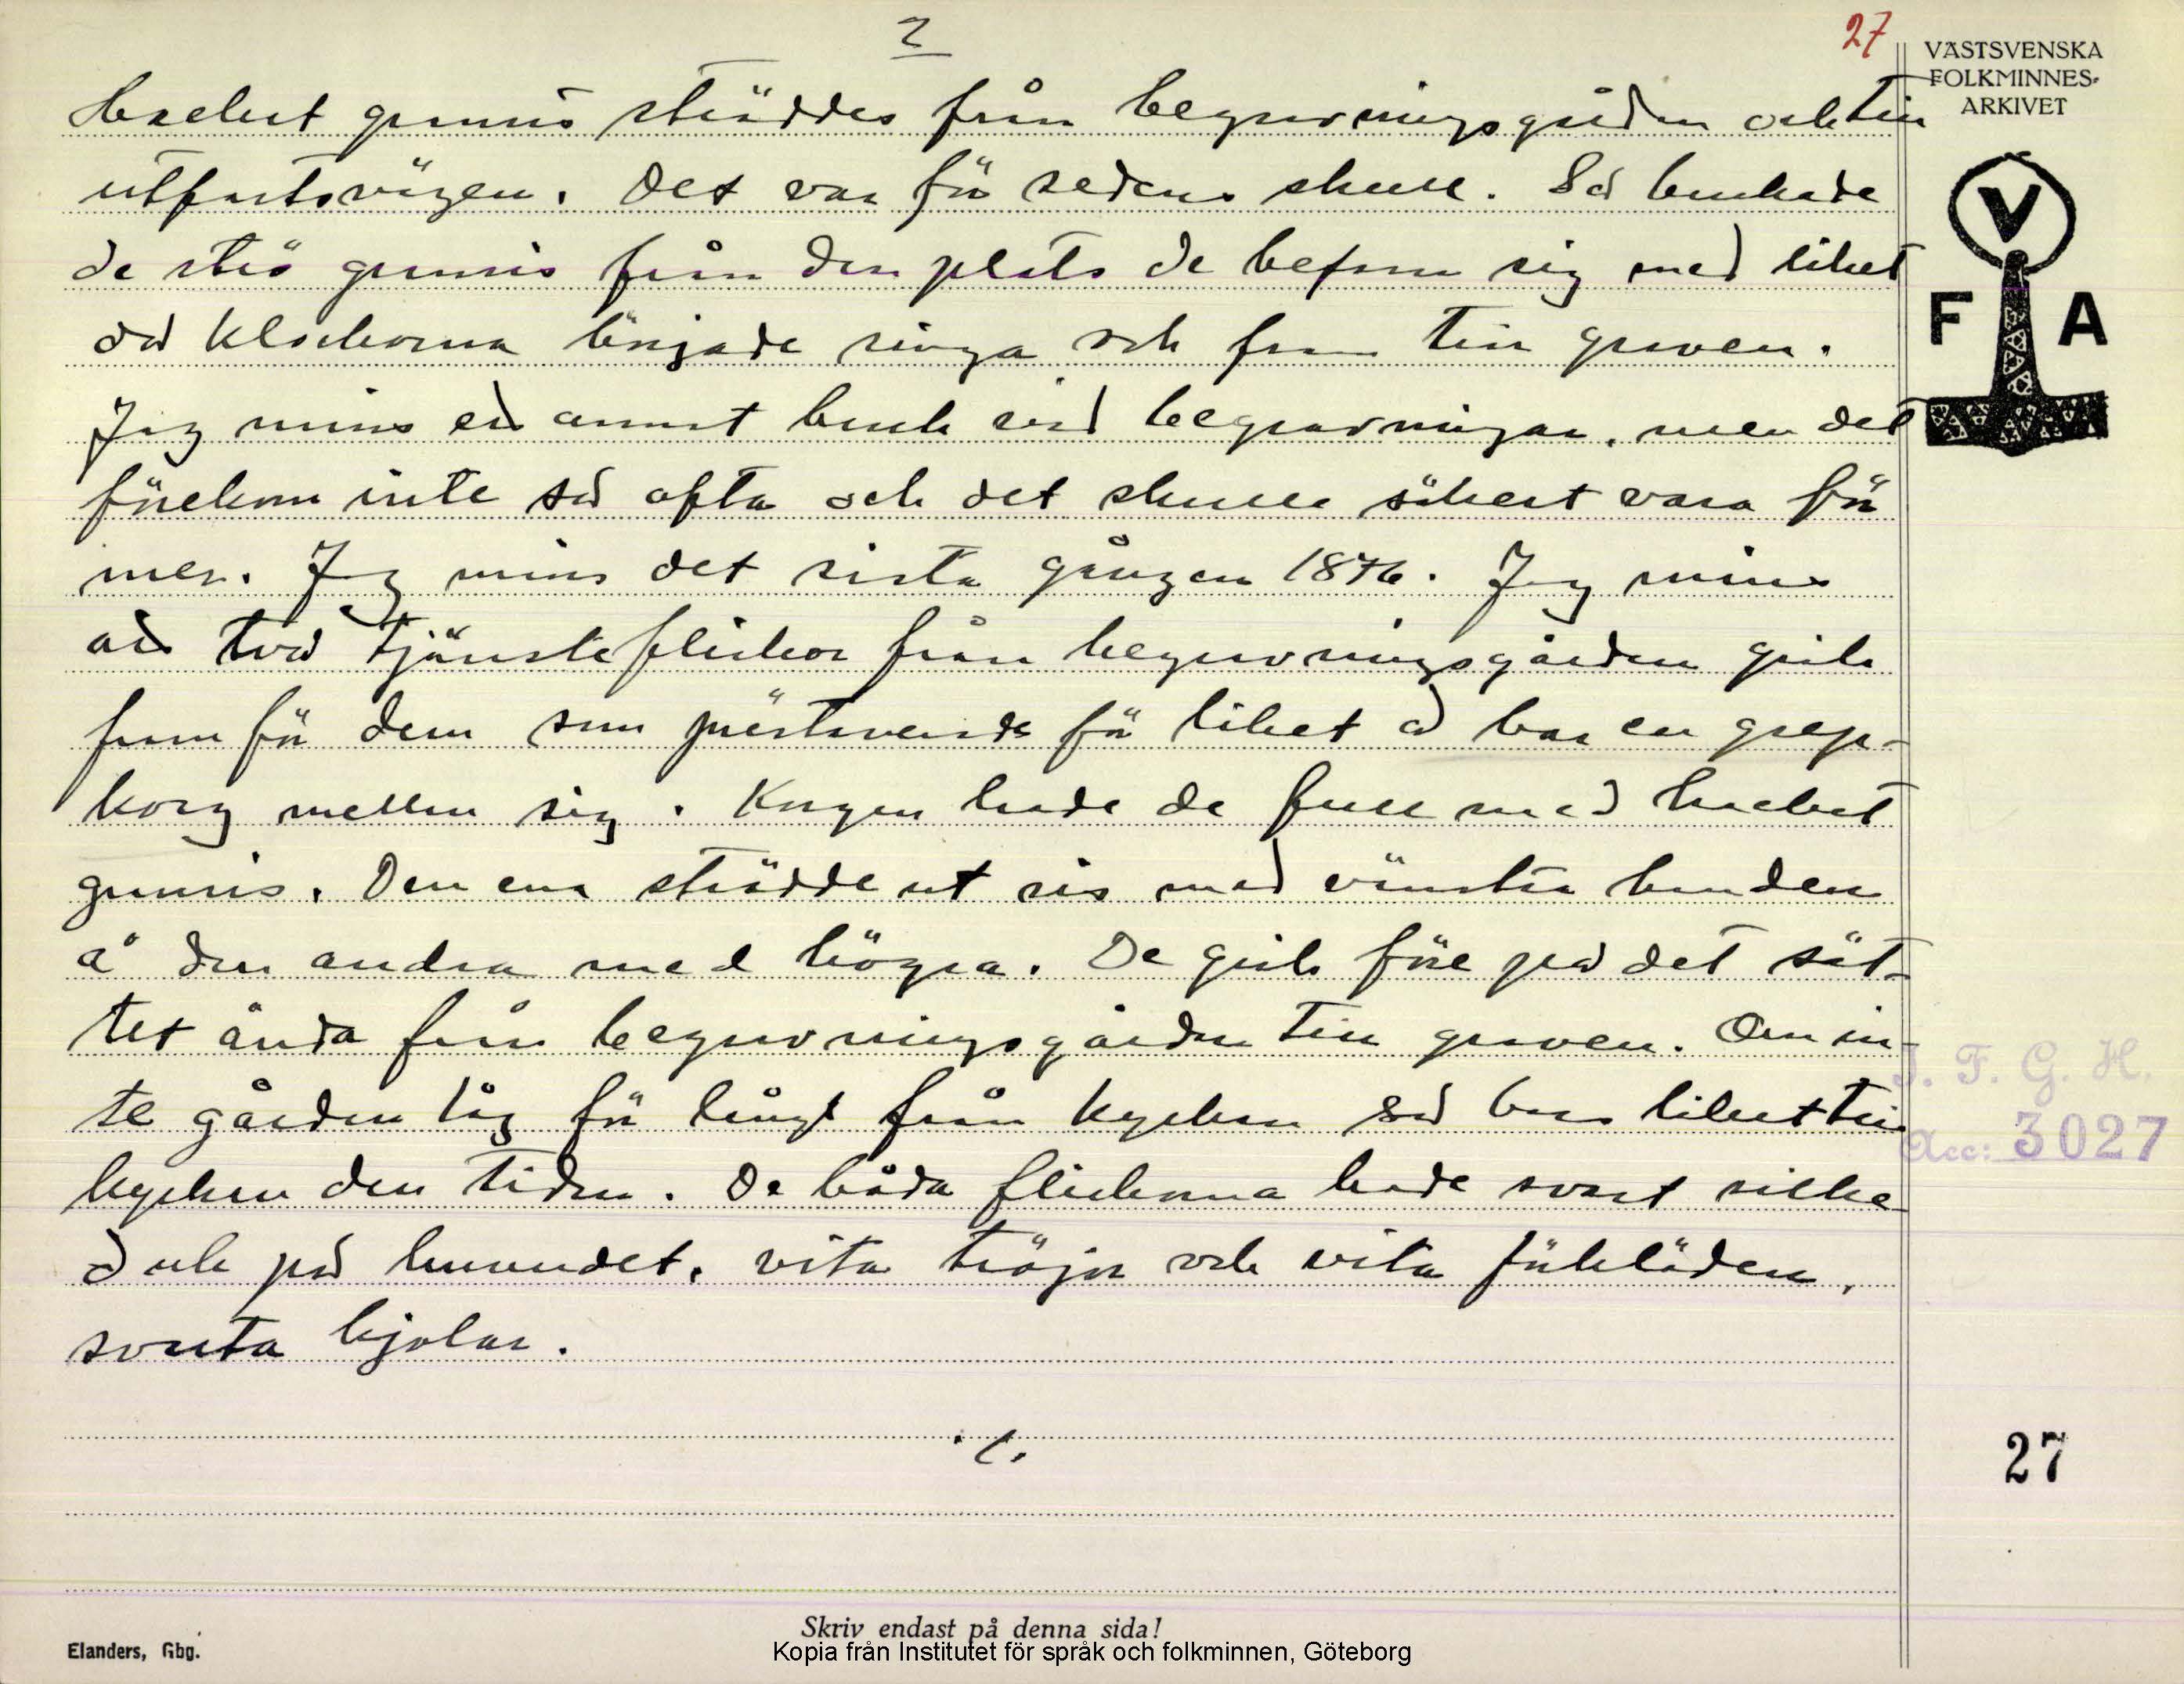 2
27
VÄSTSVENSKA
FOLKMINNES-
ARKIVET
Hackert granris ströddes från begravningsgården och till
utfartsvägen. Det var för sedens skull. Så brukade
de strö granris från den plats de befann sig med liket
då klockorna började ringa och fram till graven.
V
F A
Jag mins ett annat bruk vid begravningar, men det
förekom inte så ofta och det skulle säkert vara för
mer. Jag mins det sista gången 1876. Jag mins
att två tjänsteflickor från begravningsgården gick
fram för dem som prästaverade för liket å bar en grep-
korg mellan sig. Korgen hade de full med hackat
granris. Den ena strödde ut ris med vänstra handen
å den andra med högra. De gick före på det sät-
tet ända från begravningsgården till graven. Om in-
te gården låg för långt från kyrkan så bars liket till
kyrkan den tiden. De båda flickorna hade svart silke
duk på huvudet, vita tröjor och vita förkläden,
svarta kjolar.
I. F. G. H.
Acc: 3027
27
Skriv endast på denna sida!
Elanders, Gbg.
Kopia från Institutet för språk och folkminnen, Göteborg